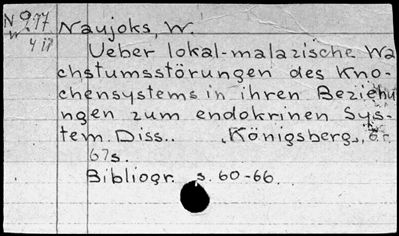 N 977 Naujoks, W.
W 417
Ueber lokal-malazische Wa
chstumsstörungen des Kno-
chensystems in ihren Beziehu
ngen zum endokrinen Sys-
tem. Diss.. Königsberg,
67s.
Bibliogr. s. 60-66.